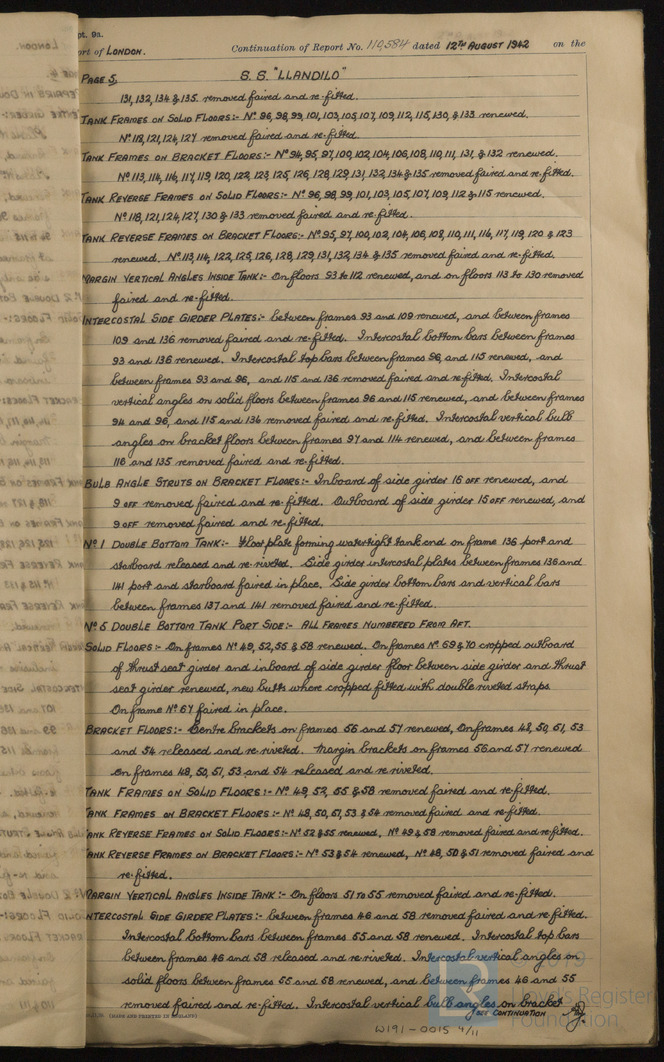 pt. 9a.
rt of LONDON. Continuation of Report No. 110,584 dated 12TH AUGUST 1942 on the
PAGE 5. S.S. "LLANDILO"
131, 132, 134 & 135 removed faired and re-fitted.
TANK FRAMES ON SOLID FLOORS:- Nº 96, 98, 99, 101, 103, 105, 107, 109, 112, 115, 130, & 133 renewed.
Nº 118, 121, 124, 127 removed faired and re-fitted.
TANK FRAMES ON BRACKET FLOORS:- Nº 94, 95, 97, 100, 102, 104, 106, 108, 110, 111, 131, & 132 renewed.
Nº 113, 114, 116, 117, 119, 120, 122, 123, 125, 126, 128, 129, 131, 132, 134 & 135 removed faired and re-fitted.
TANK REVERSE FRAMES ON SOLID FLOORS:- Nº 96, 98, 99, 101, 103, 105, 107, 109, 112 & 115 renewed.
Nº 118, 121, 124, 127, 130 & 133 removed faired and re-fitted.
TANK REVERSE FRAMES ON BRACKET FLOORS:- Nº 95, 97, 100, 102, 104, 106, 108, 110, 111, 116, 117, 119, 120 & 123
renewed. Nº 113, 114, 122, 125, 126, 128, 129, 131, 132, 134 & 135 removed faired and re-fitted.
MARGIN VERTICAL ANGLES INSIDE TANK:- On floors 93 to 112 renewed, and on floors 113 to 130 removed
faired and re-fitted.
INTERCOSTAL SIDE GIRDER PLATES:- between frames 93 and 109 renewed, and between frames
109 and 136 removed faired and re-fitted. Intercostal bottom bars between frames
93 and 136 renewed. Intercostal top bars between frames 96, and 115 renewed, and
between frames 93 and 96, and 115 and 136 removed faired and re-fitted. Intercostal
vertical angles on solid floors between frames 96 and 115 renewed, and between frames
94 and 96, and 115 and 136 removed faired and re-fitted. Intercostal vertical bulb
angles on bracket floors between frames 97 and 114 renewed, and between frames
116 and 135 removed faired and re-fitted.
BULB ANGLE STRUTS ON BRACKET FLOORS:- Inboard of side girder 16 OFF renewed, and
9 OFF removed faired and re-fitted. Outboard of side girder 15 OFF renewed, and
9 OFF removed faired and re-fitted.
Nº 1 DOUBLE BOTTOM TANK:- Floor plate forming watertight tank end on frame 136 port and
starboard released and re-riveted. Side girder intercostal plates between frames 136 and
141 port and starboard faired in place. Side girder bottom bars and vertical bars
between frames 137 and 141 removed faired and re-fitted.
Nº 5 DOUBLE BOTTOM TANK PORT SIDE:- ALL FRAMES NUMBERED FROM AFT.
SOLID FLOORS:- On frames Nº 49, 52, 55 & 58 renewed. On frames Nº 69 & 70 cropped outboard
of thrust seat girder and inboard of side girder floor between side girder and thrust
seat girder renewed, new butts where cropped fitted with double riveted straps.
On frame Nº 67 faired in place.
BRACKET FLOORS:- Centre brackets on frames 56 and 57 renewed, On frames 48, 50, 51, 53
and 54 released and re-riveted. Margin brackets on frames 56 and 57 renewed
on frames 48, 50, 51, 53 and 54 released and re-riveted.
TANK FRAMES ON SOLID FLOORS:- Nº 49, 52, 55 & 58 removed faired and re-fitted.
TANK FRAMES ON BRACKET FLOORS:- Nº 48, 50, 51, 53 & 54 removed faired and re-fitted.
ANK REVERSE FRAMES ON SOLID FLOORS:- Nº 52 & 55 renewed, Nº 49 & 58 removed faired and re-fitted.
ANK REVERSE FRAMES ON BRACKET FLOORS:- Nº 53 & 54 renewed, Nº 48, 50 & 51 removed faired and
re-fitted.
MARGIN VERTICAL ANGLES INSIDE TANK:- On floors 51 to 55 removed faired and re-fitted.
INTERCOSTAL SIDE GIRDER PLATES:- between frames 46 and 58 removed faired and re-fitted.
Intercostal bottom bars between frames 55 and 58 renewed. Intercostal top bars
between frames 46 and 58 released and re-riveted. Intercostal vertical angles on
solid floors between frames 55 and 58 renewed, and between frames 46 and 55
removed faired and re-fitted. Intercostal vertical bulb angles on bracket
SEE CONTINUATION
(MADE AND PRINTED IN ENGLAND)
W191-0015 4/11
Lloyd's Register
Foundation